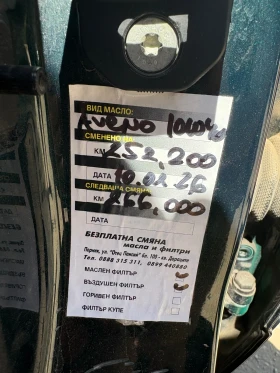 ВИД МАСЛО:
Aveno 10W40
СМЕНЕНО НА:
КМ 252,200
ДАТА 10.02.26
СЛЕДВАЩА СМЯНА
КМ 266,000
ДАТА
БЕЗПЛАТНА СМЯНА
масла и филтри
Перник, ул. "Отец Паисий" бл. 105 - кв. Драголец
Тел. 0888 315 311, 0899 440880
МАСЛЕН ФИЛТЪР
ВЪЗДУШЕН ФИЛТЪР
ГОРИВЕН ФИЛТЪР
ФИЛТЪР КУПЕ